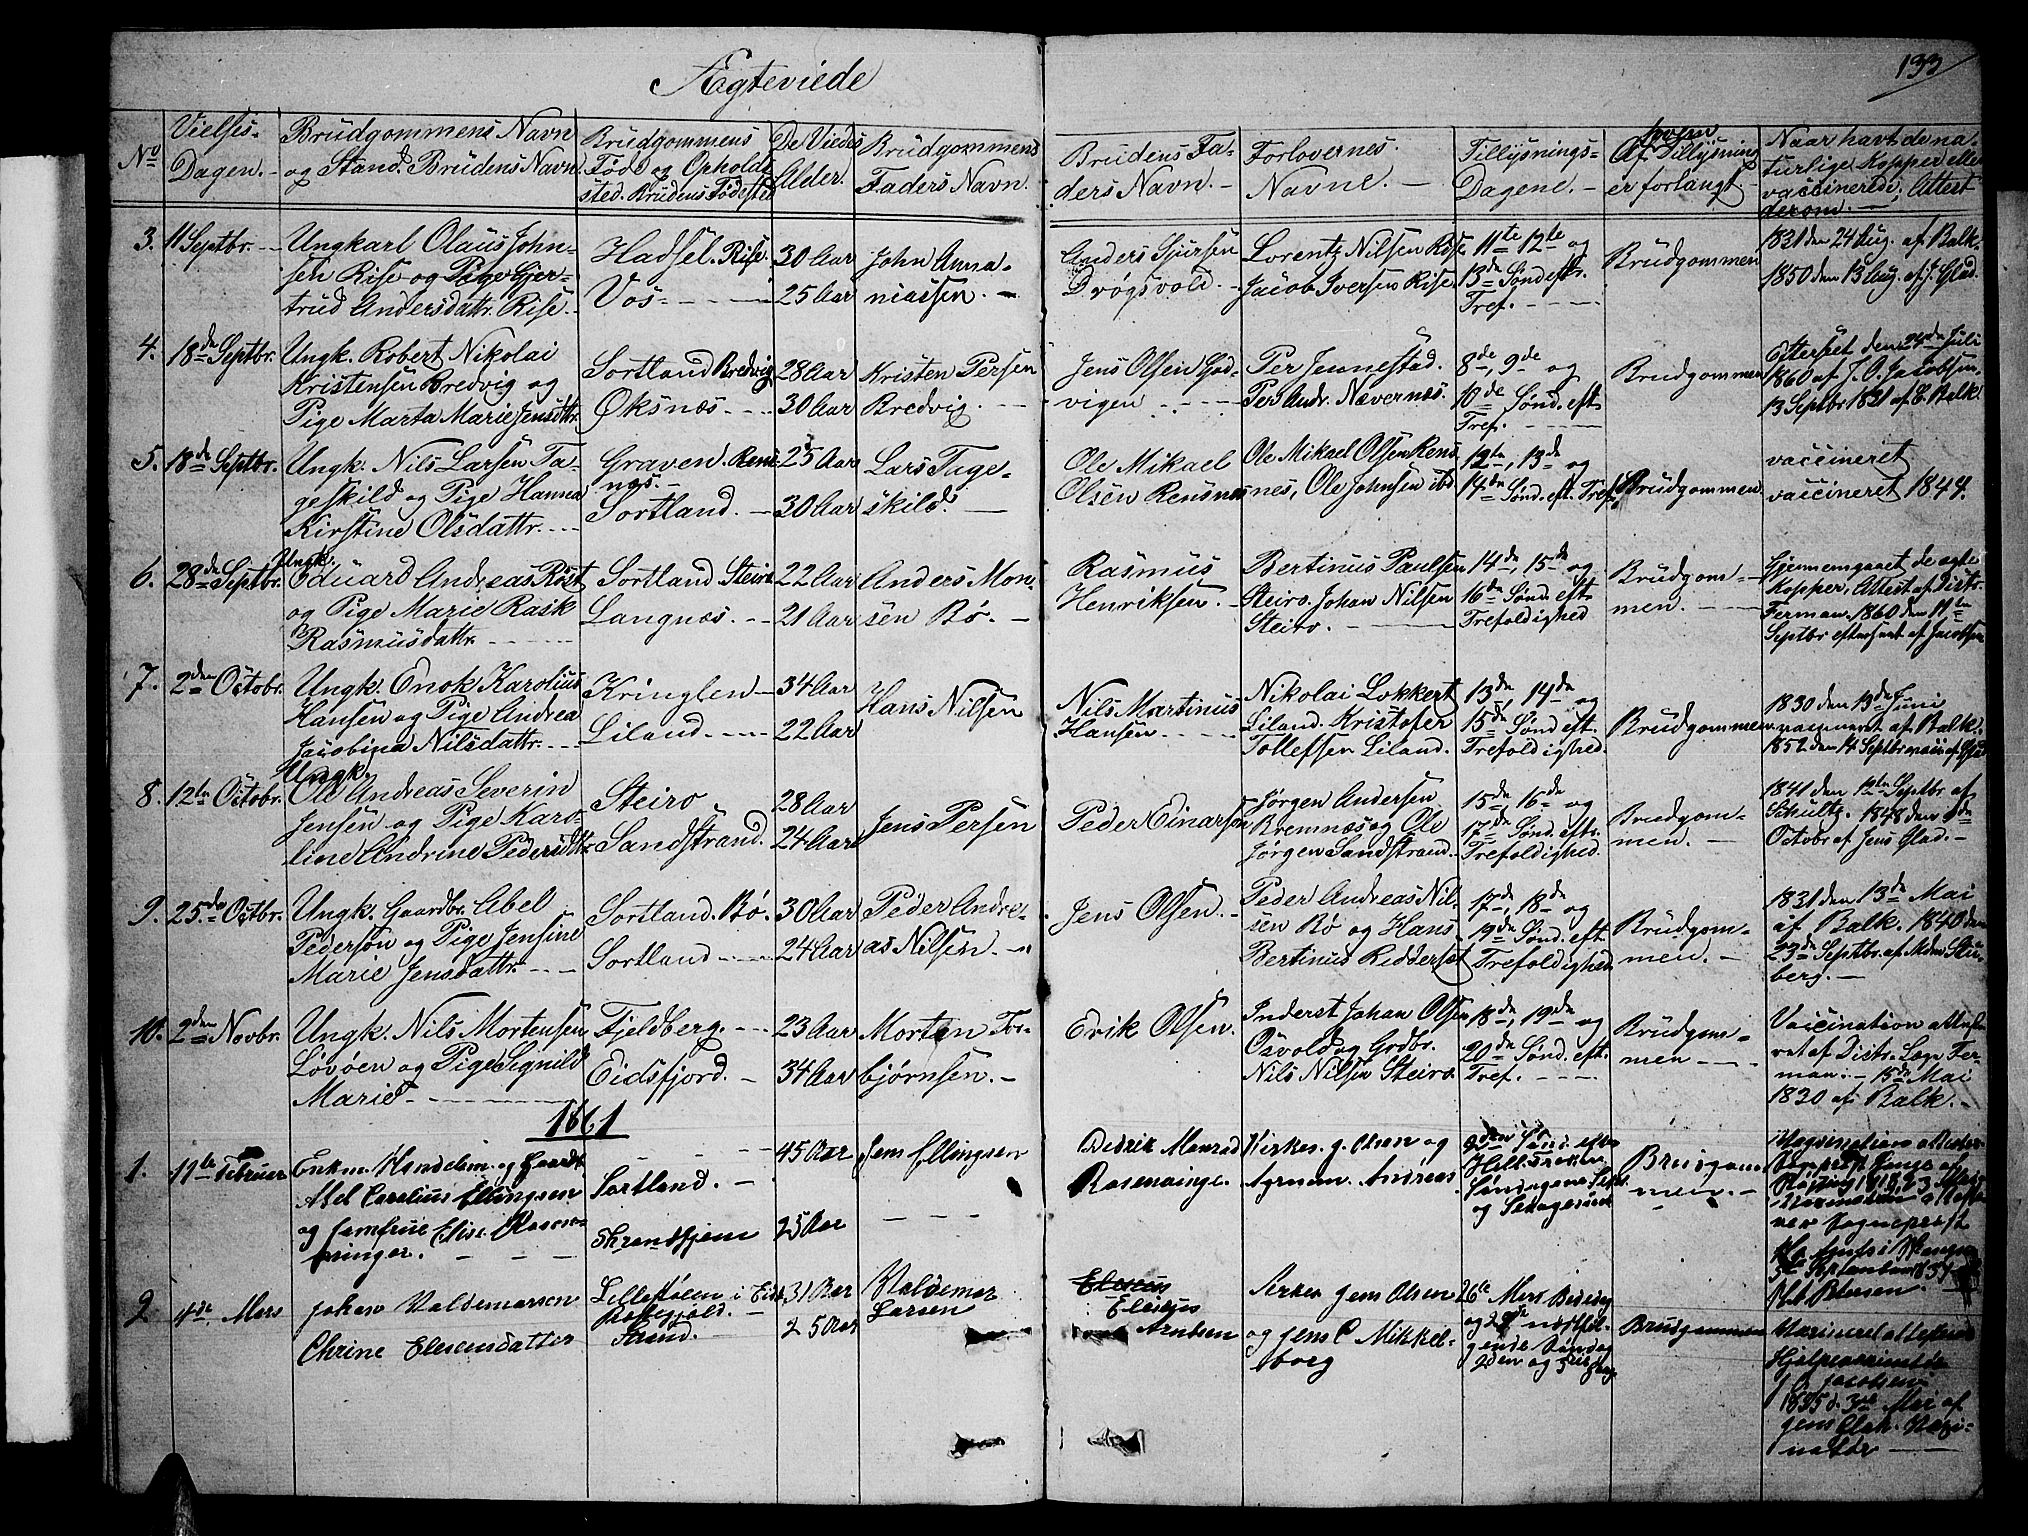 133
Ægteviede
No
Vielses-
Dagen. -
Brudgommens Navn
og Stand. Brudens Navn
Brudgommens
Føde og Opholds
sted. Brudens Fødested
De Viedes
Alder.
Brudgommens
Faders Navn.
Brudens Fa-
ders Navn. -
Forlovernes
Navne. -
Tillysnings-
Dagene. -
hvem
Af Tillysning
er forlangt -
Naar havt de na-
turlige Kopper eller
vaccinerede, Attest
derom. -
3. 11 Septbr.
Ungkarl Olaus John-
sen Rise og Pige Gjer-
trud Andersdattr. Rise.
Hadsel. Rise.
Vos
30 Aar
25 Aar
John Anna-
niassen. -
Anders Sjursen
Drøgsvold. -
Lorentz Nilsen Rise
Jacob Iversen Rise
11te 12te og
13de Sønd. eftr.
Tref.
Brudgommen
1831 den 24 Aug. af Balk.
1850 den 13 Aug. af J. Glad.
4. 18de Septbr.
Ungk. Robert Nikolai
Kristensen Bredvig og
Pige Marta Marie Jensdttr.
Sortland Bredvig
Øksnæs.
28 Aar
30 Aar
Kristen Persen
Bredvig. -
Jens Olsen God-
vigen
Per Jennestad.
Per Andr. Nævernes.
8de, 9de og
10de Sønd. eft.
Tref.
Brudgommen
Efterset den 24de Juli
1860 af J. O. Jacobsen.
13 Septbr 1831 af E. Balk.
5. 18de Septbr.
Ungk. Nils Larsen Ta-
geskild og Pige Hanna
Kirstine Olsdattr.
Graven. Rens-
næs. -
Sortland. -
25 Aar
30 Aar
Lars Tage-
skild. -
Ole Mikael
Olsen Rensnes
Ole Mikael Olsen Rens
nes, Ole Johnsen ibd.
12te, 13de og
14de Sønd. eft. Tref.
Brudgommen
vaccineret
vaccineret 1844.
6. 28de Septbr.
Ungk.
Eduard Andreas Rost
og Pige Marie Rask
Rasmusdattr.
Sortland Steiro
Langnæs.
22 Aar
21 Aar
Anders Mon-
sen Bø. -
Rasmus
Henriksen. -
Bertinus Paulsen
Steiro. Johan Nilsen
Steiro. -
14de, 15de og
16de Sønd. eft.
Trefoldighed
Brudgom-
men. -
Gjennemgaaet de egte
Kopper, Attest af Distr.
Ferman. 1860 den 11te
Septbr efterset af Jacobsen
7. 2den Octobr.
Ungk. Enok Karolius
Hansen og Pige Andrea
Jacobina Nilsdattr.
Kringlen
Liland.
34 Aar
22 Aar
Hans Nilsen
Nils Martinus
Hansen.
Nikolai Lokkert
Liland. Kristofer
Tollefsen Liland.
13de, 14de og
15de Sønd. eft.
Trefoldighed.
Brudgommen
1830 den 13de Juni
vaccineret af Balk.
1852 den 14 Septbr vacc. af Glad
8. 12te Octobr.
Ungk.
Ole Andreas Severin
Jensen og Pige Karo-
line Andrine Pedersdttr
Steiro
Sandstrand.
28 Aar
24 Aar
Jens Persen
Peder Einarsen
Jørgen Andersen
Bremnes og Ole
Jørgen Sandstrand.
15de, 16de og
17de Sønd. eftr.
Trefoldighed.
Brudgom-
men. -
1841 den 12te Septbr af
Schultz. 1848 den 8de
Octobr af Jens Glad. -
9. 25de Octbr.
Ungk. Gaardbr. Abel
Pedersøn og Pige Jensine
Marie Jensdattr.
Sortland. Bø.
Sortland
30 Aar
24 Aar
Peder Andre-
as Nilsen. -
Jens Olsen. -
Peder Andreas Nil-
sen Bø og Hans
Bertinus Reddersæt
17de, 18de og
19de Sønd. eft.
Trefoldighed
Brudgom-
men. -
1831 den 13de Mai
af Balk. 1840 den
23de Septbr. af Aden Stu-
berg. -
10. 2den Novbr.
Ungk. Nils Mortensen
Løvøen og Pige Signild
Marie
Fjeldberg.
Eidsfjord. -
23 Aar
34 Aar
Morten Tor-
bjørnsen. -
Erik Olsen.
Inderst Johan Olsen
Osvold og Grdbr.
Nils Nilsen Steiro
18de, 19de og
20de Sønd. eft.
Tref.
Brudgom-
men
Vaccination attest
ret af Distr. Læge Fer-
man. - 15de Mai
1820 af Balk. -
1861
1. 11te Februar
Enkm. Handelsm. og Gaardbr.
Abel Carolius Ellingsen
og Jomfrue Elise Rosen-
vinger.
Sortland. -
Throndhjem
45 Aar
25 Aar
Jens Ellingsen
Didrik Monrad
Rosenvinge.
Kirkes. J. Olsen og
Agrmm. Andreas
2den Sønd. eftr
Hell. Tre Kon.
Søndagene Sept.
og Sexagesima
Brudgom-
men. -
2 4de Mars
Johan Valdemarsen
Chrine Elesensdatter
Lillestølen i Eids
31 Aar
25 Aar
Valdemar
Larsen
Eleseus
Eleseus
Arntsen
Kirkes. Jens Olsen
og Jens C Mikkel-
borg
26te Mars Bededag
og 28de nestføl-
gende Søndag
2den og
Brudgommen
Vaccineret attestered
Hjelpevaccinatør
J. O. Jacobsen
1835 d. 3de Mai af
Jens Olsen. Vacci-
natør